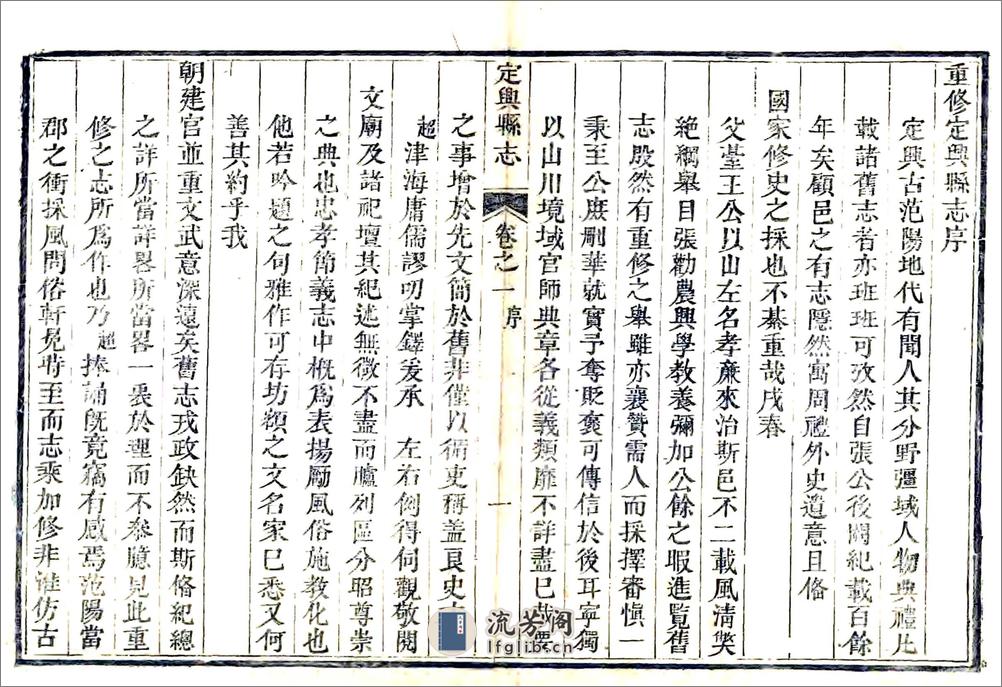 重修定興縣志序
定興古范陽地代有聞人其分野彊域人物典禮比
載諸舊志者亦班班可攷然自張公後闕紀載百餘
年矣顧邑之有志隱然寓周禮外史遺意且偹
國家修史之採也不綦重哉戌春
父臺王公以山左名孝亷來治斯邑不二載風淸獘
絶綱舉目張勸農興學敎養彌加公餘之暇進覧舊
志殷然有重修之舉雖亦襄贊需人而採擇審愼一
秉至公庶刪華就實予奪貶褒可傳信於後耳寧獨
以山川境域官師典章各從義類靡不詳盡已哉
定興縣志
卷之一
序
一
之事增於先文簡於舊非僅以循吏稱盖良史
超津海庸儒謬叨掌鐸爰承 左右倒得伺觀敬閱
文廟及諸祀壇其紀述無微不盡而臚列區分昭尊崇
之典也忠孝節義志中槪爲表揚勵風俗施敎化也
他若吟題之句雅作可存坊額之文名家已悉又何
善其約乎我
朝建官並重文武意深遠矣舊志戎政缺然而斯偹紀總
之詳所當詳畧所當畧一衷於理而不叅臆見此重
修之志所爲作也乃超捧誦旣竟竊有感焉范陽當
郡之衝採風問俗軒冕時至而志乘加修非准仿古
流芳阁
lfglib.cn